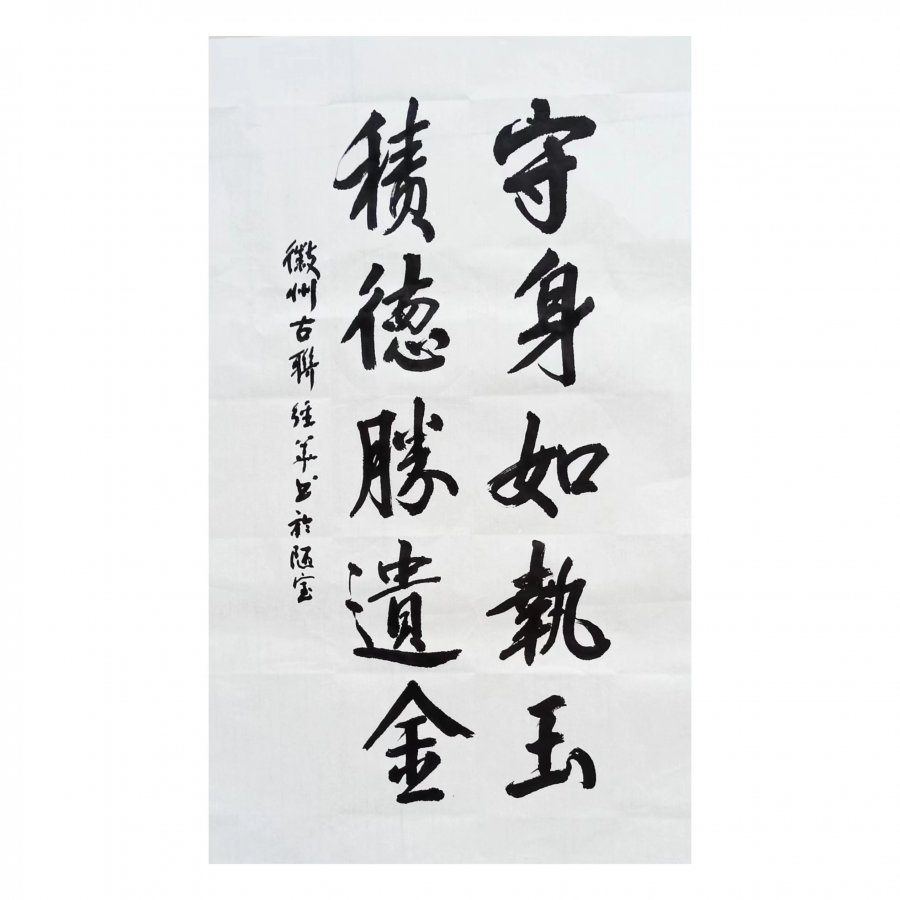 守身如執玉
積德勝遺金
徽州古聯經華書於陋室